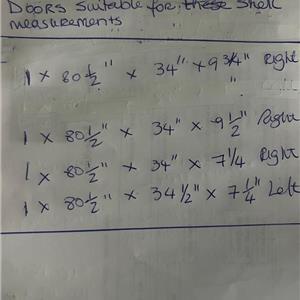 Doors suitable for these shell
measurements
1 x 80 1/2" x 34" x 9 3/4" Right
1 x 80 1/2" x 34" x 9 1/2" Right
1 x 80 1/2" x 34" x 7 1/4 Right
1 x 80 1/2" x 34 1/2" x 7 1/4" Left